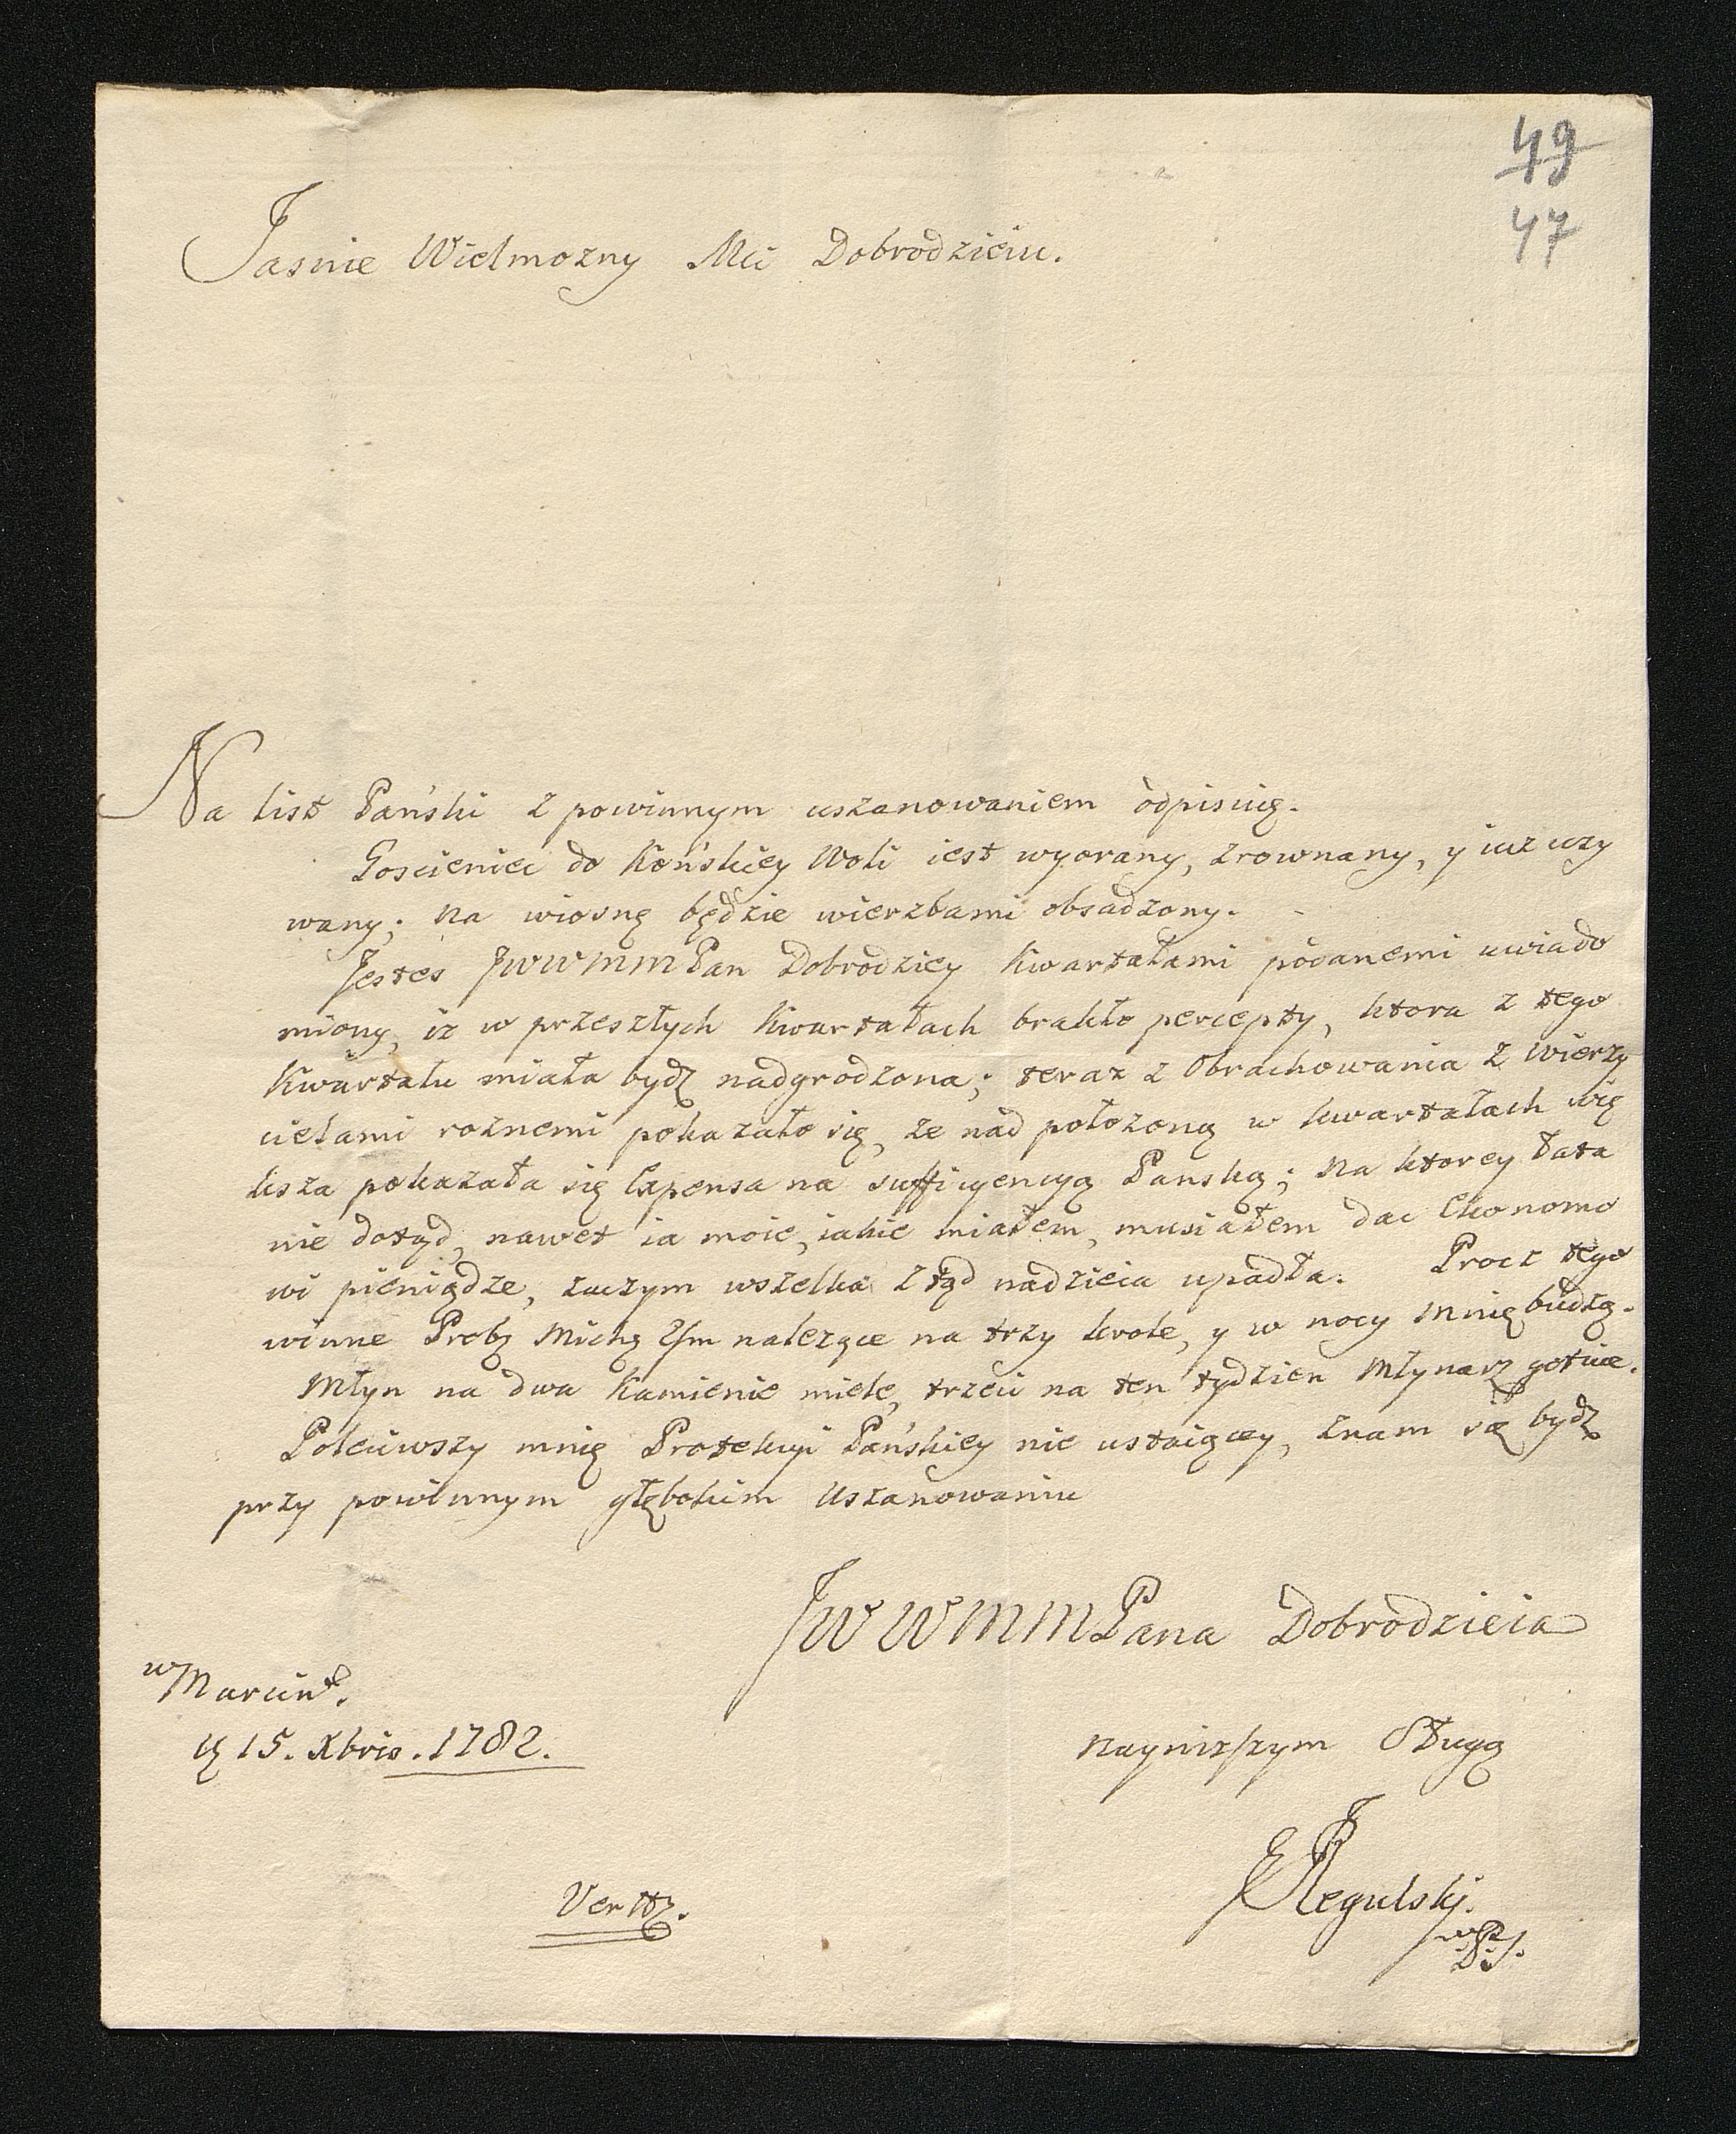 49
47
Jasnie Wielmozny Mci Dobrodzieiu.
Na list Pański z powinnym uszanowaniem odpisuię.
Gosciniec do Końskiey Woli iest wyorany, zrownany, y iuz uzy
wany; na wiosnę będzie wierzbami obsadzony. -
Jestes JWWMMPan Dobrodziey Kwartałami podanemi uwiado
miony, iz w przeszłych Kwartałach brakło percepty, ktora z tego
Kwartału miała bydz nadgrodzona; teraz z Obrachowania z wierzy
cielami roznemi pokazało się, ze nad połozoną w kwartałach wię
ksza pokazała się Expensa na sufficyencyą Panską; na ktorey łata
nie dotąd, nawet ia moie, iakie miałem, musiałem dac Ekonomo
wi pieniądze, zaczym wszelka ztąd nadzieia upadła. Procz tego
winne Prob: 2/m nalezące na trzy krole, y w nocy mnię budzą.
Młyn na dwa Kamienie miele, trzeci na ten tydzien Młynarz gotuie.
Poleciwszy mnię Protekcyi Pańskiey nie ustaiącey, znam się bydz
przy powinnym głębokim Uszanowaniu
JWWMMPana Dobrodzieia
w Marcin:
15. Xbris. 1782.
nayniszszym Sługą
Regulski.
Vertt.